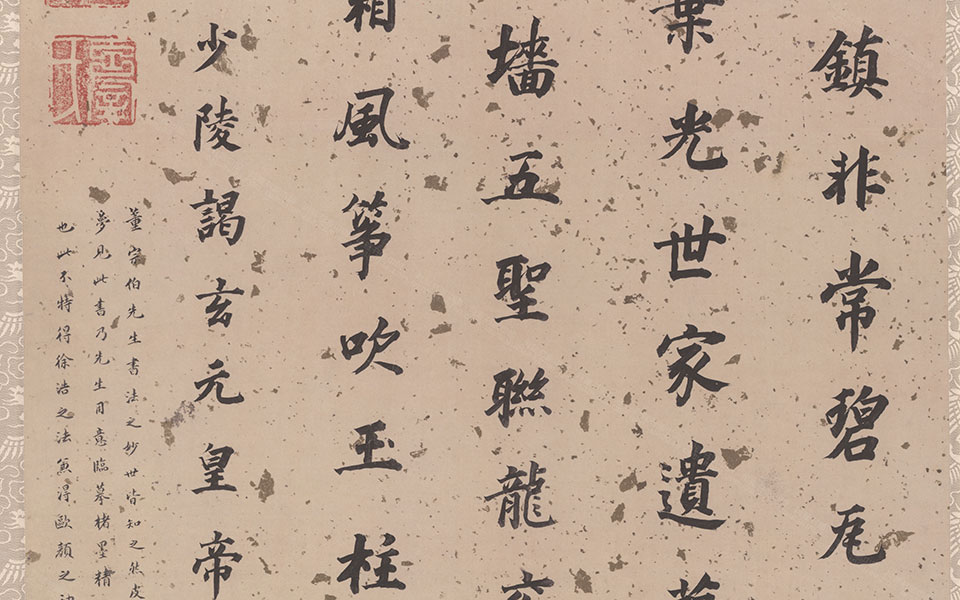 鎮非常碧瓦
葉光世家遺
墻五聖聯龍
箱風筝吹玉柱
少陵謁玄元皇帝
董宗伯先生書法之妙世皆知之然
夢見此書乃先生用意臨摹楮墨精
也此不特得徐浩之法兼得歐顏之